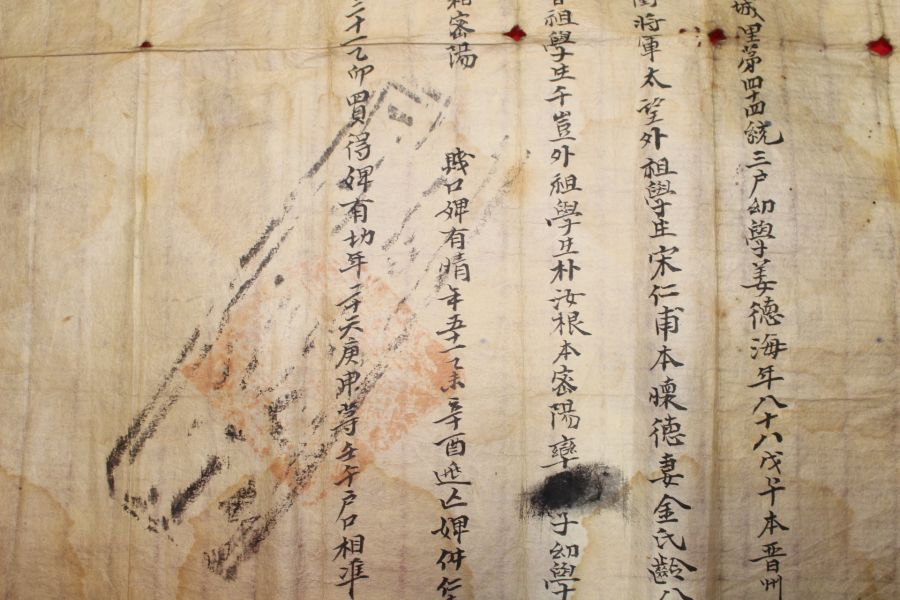 城里第四十四統三戶幼學姜德海年八十八戊午本晋州
將軍太望外祖學生宋仁甫本懷德妻金氏齡八
祖學生千豈外祖學生朴汝根本密陽率子幼學
密陽 賤口婢有晴年五十一乙未辛酉逃亡婢
三十一乙卯買得婢有切年二十六庚申等壬午戶口相準